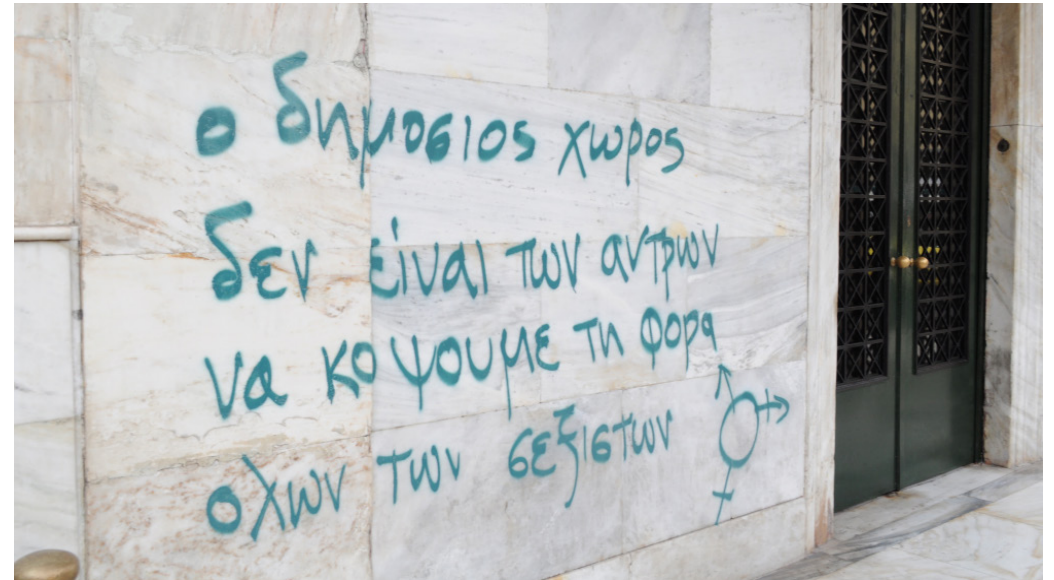 ο δημοσιος χωρος
δεν είναι των αντρων
να κοψουμε τη φορα
ολων των σεξιστων